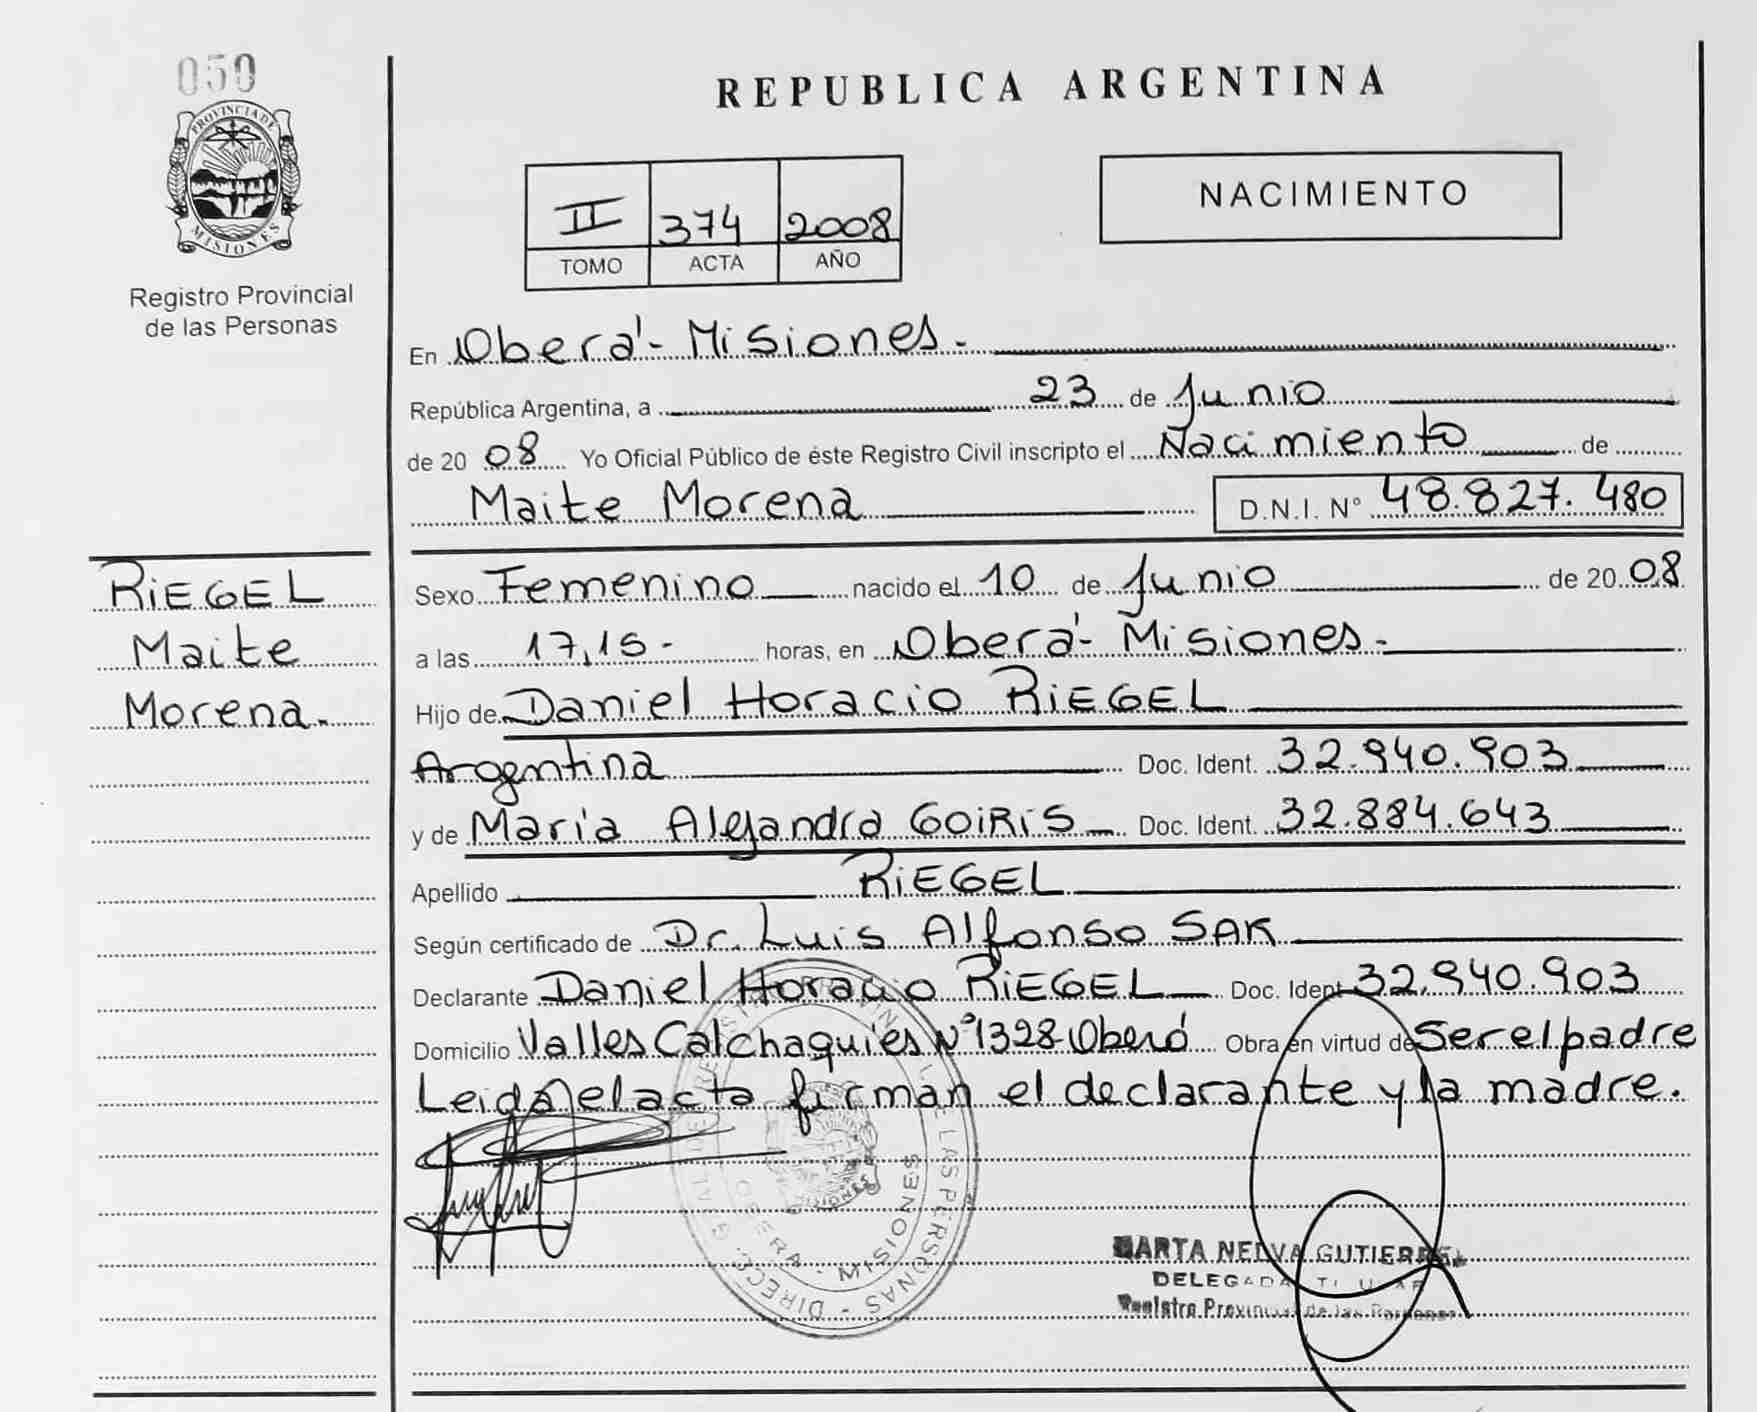 050
PROVINCIA DE
MISIONES
Registro Provincial
de las Personas
REPUBLICA ARGENTINA
II 374 2008
TOMO ACTA AÑO
NACIMIENTO
En Oberá - Misiones.
República Argentina, a 23 de Junio
de 20 08 Yo Oficial Público de éste Registro Civil inscripto el Nacimiento de
Maite Morena D.N.I. N° 48.827.480
RiEGEL
Maite
Morena.
Sexo Femenino nacido el 10 de Junio de 20 08
a las 17,15- horas, en Oberá - Misiones.
Hijo de Daniel Horacio RiEGEL
Argentina Doc. Ident. 32.940.903
y de María Alejandra GOiRiS Doc. Ident. 32.884.643
Apellido RiEGEL
Según certificado de Dr. Luis Alfonso SAK
Declarante Daniel Horacio RiEGEL Doc. Ident. 32.940.903
Domicilio Valles Calchaquíes N°1328-Oberá Obra en virtud de Ser el padre
Leida el acta firman el declarante y la madre.
OBERA - MISIONES
MISIONES
MARTA NELVA GUTIERREZ
DELEGADA TITULAR
Registro Provincial de las Personas